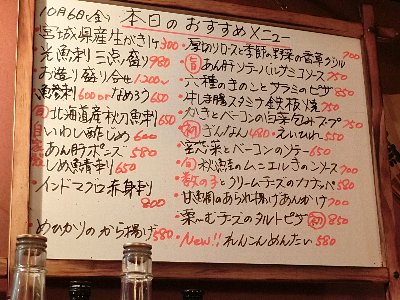 10月6日(金) 本日のおすすめメニュー
・宮城県産生がき1ヶ300
・光魚刺三点盛り980
・お造り盛り合せ1200〜
600 or なめろう650
・旬北海道産秋刀魚刺650
・いわし酢じめ600
・あん肝ポン酢580
・しめ鯖刺650
・インドマグロ赤身刺
800
・めひかりのから揚げ580
・厚切りロースと季節の野菜の香草グリル
700
・旬あん肝ソテーバルサミコソース750
・六種のきのことサラミのピザ850
・牛しま腸スタミナ鉄板焼750
・かきとベーコンの スープ750
・初ぎんなん480・えいひれ550
・菜とベーコンのソテー650
・旬秋鮭のムニエルきのこソース700
・数の子とクリームチーズのカナッペ580
・甘鯛のあられ揚げあんかけ700
・栗〜むチーズのタルトピザ初850
・New!! れんこんめんたい580